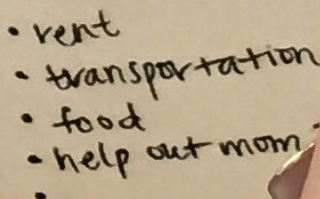 • rent
• transportation
• food
• help out mom
•